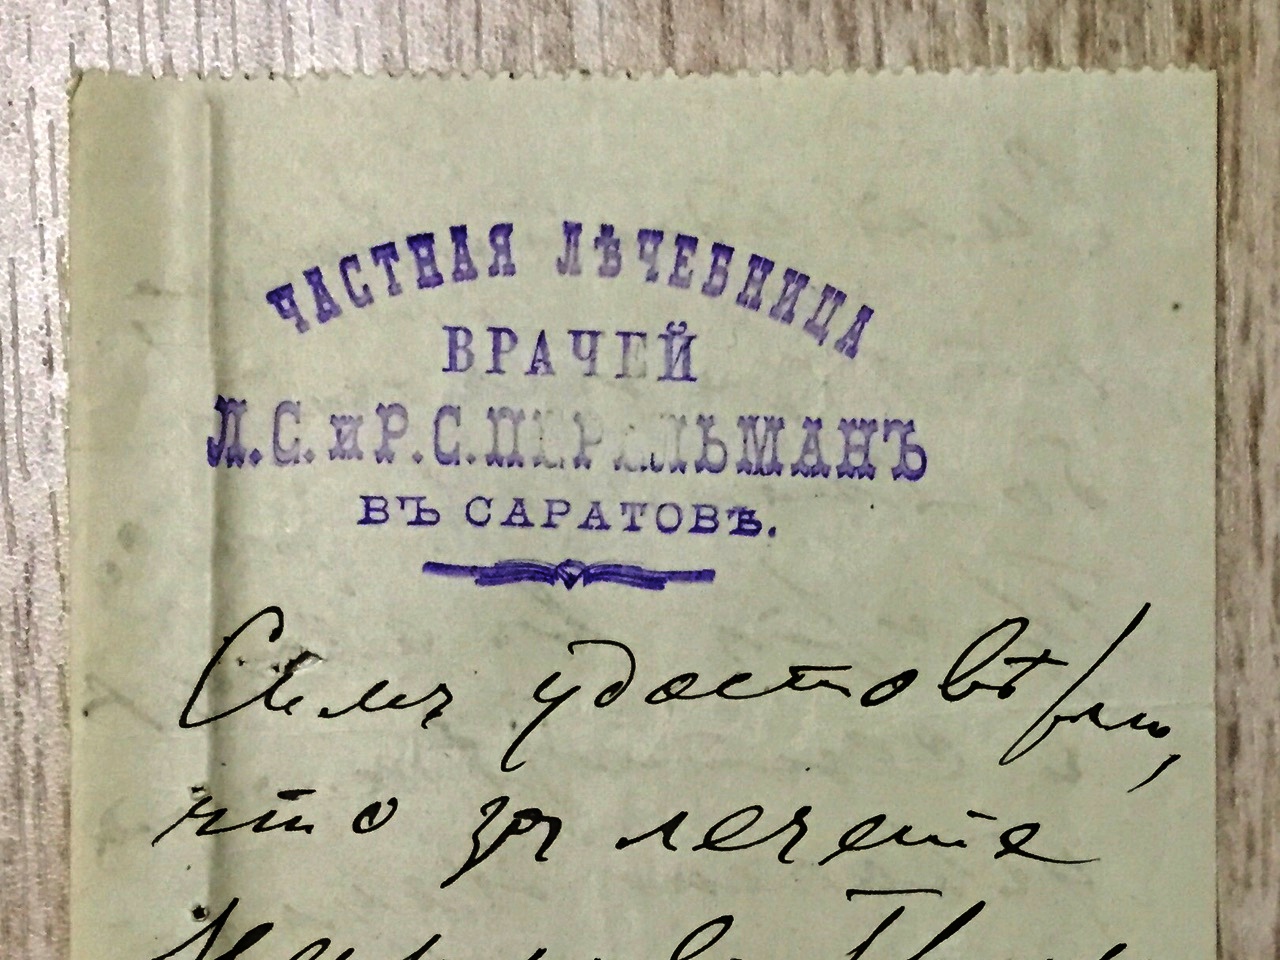 ЧАСТНАЯ ЛѢЧЕБНИЦА
ВРАЧЕЙ
Л.С. и Р.С. ПЕРЕЛЬМАНЪ
ВЪ САРАТОВѢ.
Симъ удостовѣряю,
что за лечение